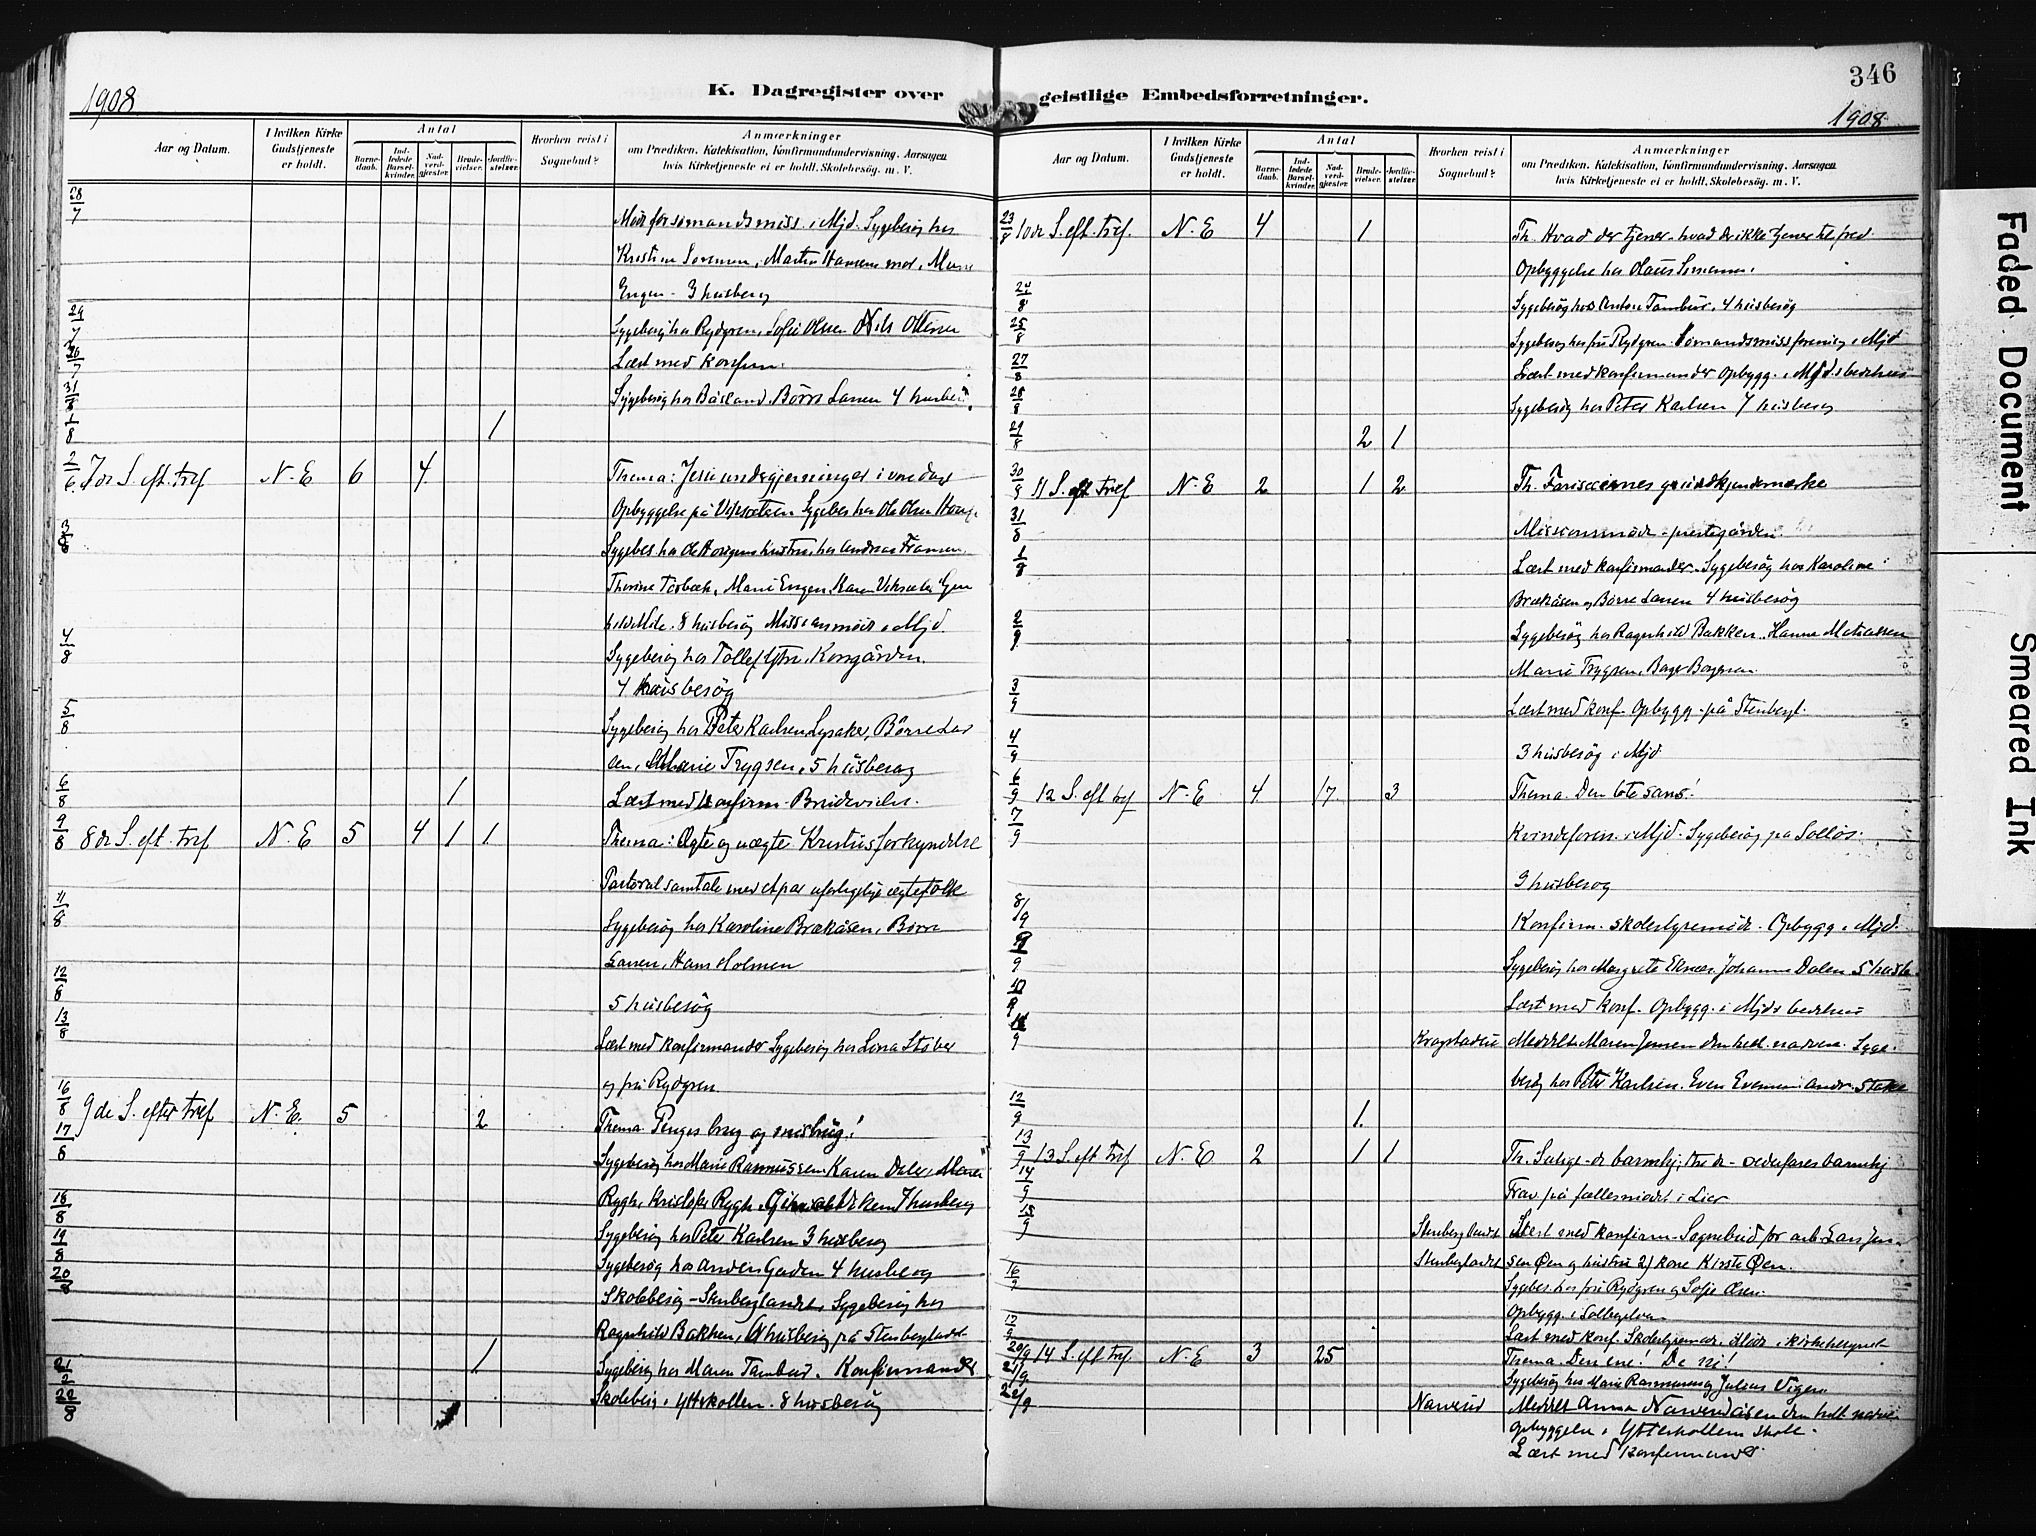 1908
K. Dagregister over
Aar og Datum.
I hvilken Kirke Gudstjeneste er holdt.
Antal
Barnedaab.
Indledede Barselkvinder.
Nadverdgjester.
Brudevielser.
Jordfæstelser.
Hvorhen reist i Sognebud?
Anmærkninger
om Prædiken. Katekisation, Konfirmandundervisning. Aarsagen
hvis Kirketjeneste ei er holdt. Skolebesøg. m. V.
28/7
Møde for sømandsmiss. i Mjd. Sygebesøg hos
Kristine Sørensen, Martin Hansens mor, Marie
Engen - 3 husbesøg
29/7 Sygebesøg hos Rydgren, Sofie Olsen Nils Ottersen
30/7 Læst med konfirm.
31/7 Sygebesøg hos Båsland. Børre Larsen 4 husbes.
1/8 1
2/8 7de S. eft. tref N. E 6 4 Thema: Jesu undergjerninger i vore dage
Opbyggelse på Sygebes hos Ole Olsen
3/8 Sygebes hos hustru, hos Andreas Fransen
Thorine Torbæk, Marie Engen, Karen
8 husbesøg Missionsmøde i Mjd.
4/8 Sygebesøg hos Tollef Ytre, Kongården.
4 husbesøg
5/8 Sygebesøg hos Peter Karlsen Lysaker, Børre Lar
sen, Marie Trygsen, 5 husbesøg
6/8 1 Læst med konfirm. Brudevielse.
9/8 8de S. eft. tref N. E 5 4 1 1 Thema: Ægte og uægte Kristusforkyndelse
Pastoral samtale med et par uforligelige ægtefolk
11/8 Sygebesøg hos Karoline Brækåsen, Børre
Larsen, Hans Holmen
12/8 5 husbesøg
13/8 Læst med konfirmander Sygebesøg hos Lina
og fru Rydgren
16/8 9de S. efter tref N. E. 5 2 Thema Penges brug og misbrug!
17/8 Sygebesøg hos Marie Rasmussen Karen Dale, Maren
Rygh, Kristofer Rygh, 7 husbesøg
18/8 Sygebesøg hos Peter Karlsen 3 husbesøg
19/8 Sygebesøg hos Anders Garden 4 husbesøg
20/8 Skolebesøg - Stenberglandet, Sygebesøg hos
Ragnhild Bakken, husbesøg på Stenberglandet
21/8 1 Sygebesøg hos Maren Tambur. Konfirmander
22/8 Skolebesøg i Ytterkollen. 8 husbesøg
geistlige Embedsforretninger.
346
1908.
Aar og Datum.
I hvilken Kirke Gudstjeneste er holdt.
Antal
Barnedaab.
Indledede Barselkvinder.
Nadverdgjester.
Brudevielser.
Jordfæstelser.
Hvorhen reist i Sognebud?
Anmærkninger
om Prædiken. Katekisation, Konfirmandundervisning. Aarsagen
hvis Kirketjeneste ei er holdt. Skolebesøg. m. V.
23/8 10de S. eft. tref. N. E 4 1 Th. Hvad der tjener - hvad der ikke tjener til fred
Opbyggelse hos Olaus Simensen.
24/8 Sygebesøg hos Anton Tambur, 4 husbesøg
25/8 Sygebesøg hos fru Rydgren. Sømandsmissforening i Mjd
27/8 Læst med konfirmander Opbygg. i Mjds bedehus
28/8 Sygebesøg hos Peter Karlsen 7 husbesøg
29/8 2 1
30/8 11 S. eft tref N. E 2 1 2 Th. Farisæernes grundkjendemærke
31/8 Missionsmøde - prestegården.
1/9 Læst med konfirmander. Sygebesøg hos Karoline
Brækåsen og Børre Larsen 4 husbesøg
2/9 Sygebesøg hos Ragnhild Bakken, Hanna Matiassen
Marie Trygsen, Borger Borgersen
3/9 Læst med konf. Opbygg. på Stenbergl.
4/9 3 husbesøg i Mjd
6/9 12 S. eft tref N. E 4 17 3 Thema. Den 6te sans!
7/9 Kvindeforen. i Mjd. Sygebesøg på Solløs.
9 husbesøg
8/9 Konfirm. skolestyremøde. Opbygg i Mjd.
9/9 Sygebesøg hos Margrete Eknæs, Johanne Dalen 5 husb.
10/9 Læst med konf. Opbygg. i Mjds bedehus
11/9 Krogstadeie Meddelt Maren Jensen den hell. nadvere. Syge-
besøg hos Peter Karlsen. Even Evensen Andr. Stake
12/9 1
13/9 13 S. eft tref N. E 2 1 1 Th. Salige - de barmhj. thi de - vederfares barmhj
14/9 Frav på fællesmødet i Lier
15/9 Stenberglandet Læst med konfirm - Sognebud for arb. Lars Jen
Stenberglandet sen Øen og hustru 2) kone Kirsti Øen.
16/9 Sygebes. hos fru Rydgren og Sofie Olsen.
Opbygg. i Solbergelven
17/9 Læst med konf. Skolestyremøde. Møde i kirketilsynet
20/9 14 S. eft tref. N. E 3 25 Thema. Den ene! De ni!
21/9 Sygebesøg hos Marie Rasmussen og Julius Vigen
22/9 Narverud Meddelt Anna Narverudåsen den hell nadver
Opbyggelse i Ytterkollens skole.
Læst med konfirmander.
Faded Document
Smeared Ink